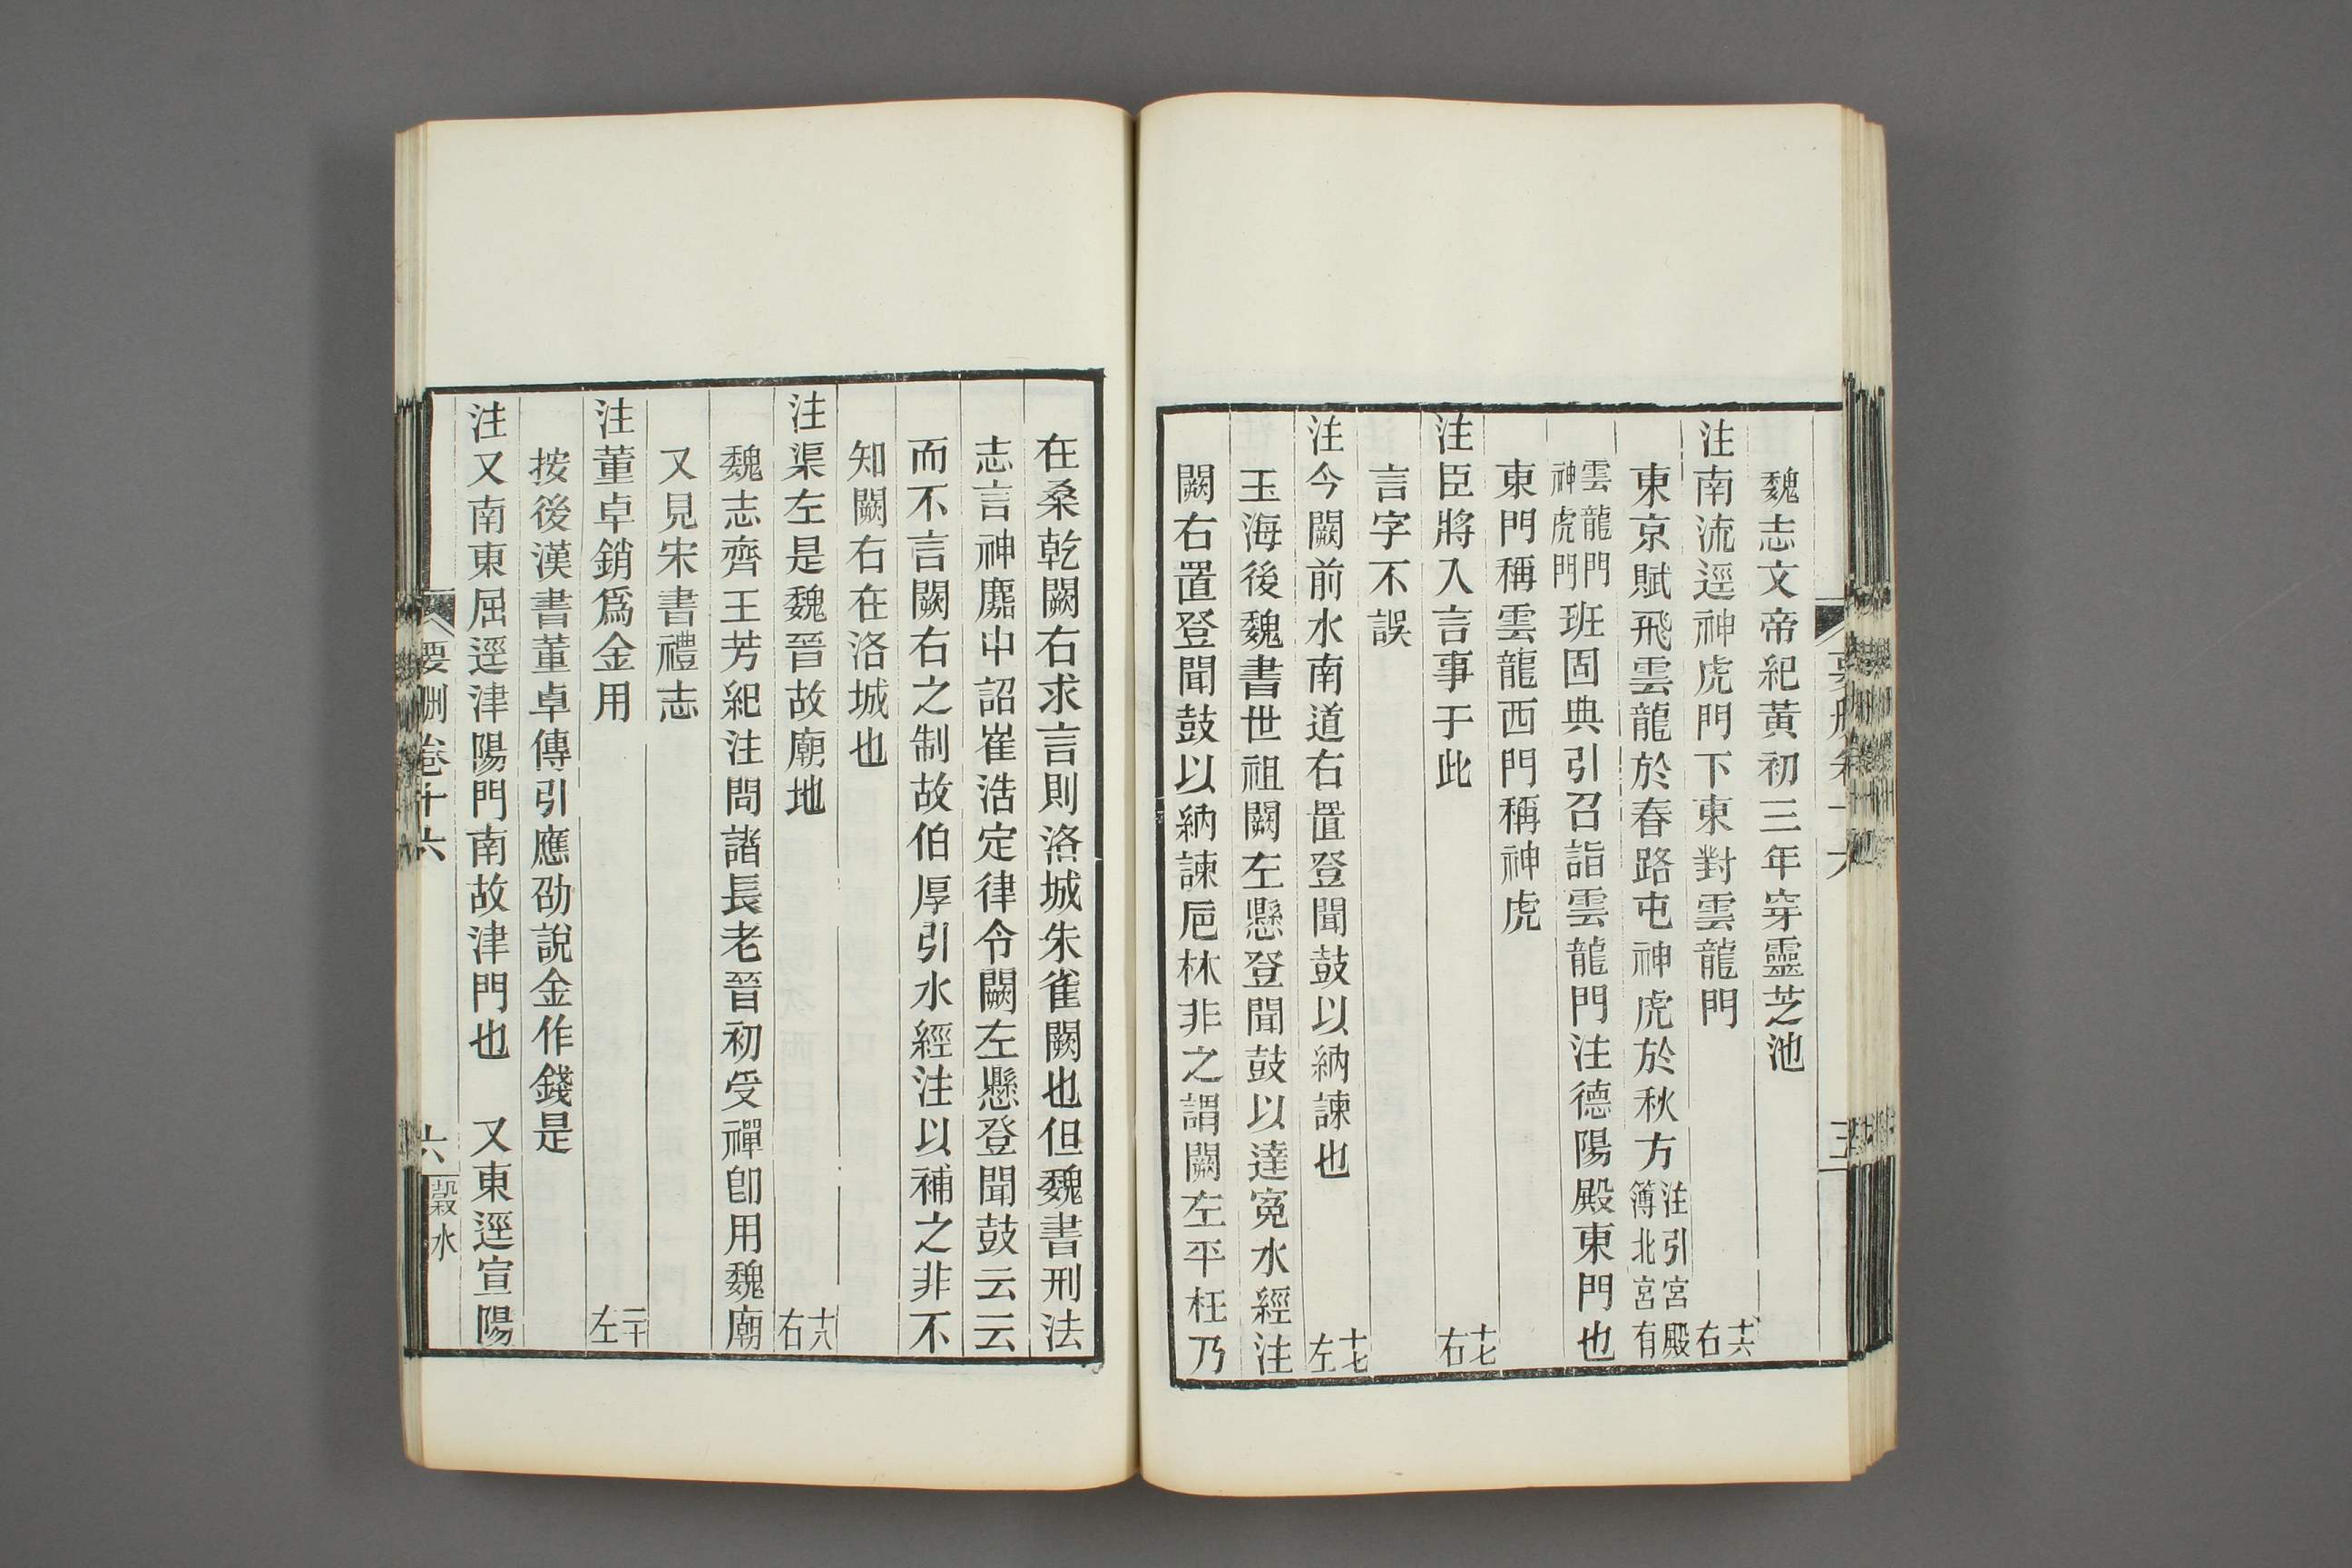 魏志文帝紀黃初三年穿靈芝池
注南流逕神虎門下東對雲龍門 十六右
東京賦飛雲龍於春路屯神虎於秋方注引宮殿簿北宮有
雲龍門神虎門班固典引召詣雲龍門注德陽殿東門也
東門稱雲龍西門稱神虎
注臣將入言事于此 十七右
言字不誤
注今闕前水南道右置登聞鼓以納諫也 十七左
玉海後魏書世祖闕左懸登聞鼓以達寃水經注
闕右置登聞鼓以納諫巵林非之謂闕左平枉乃
在桑乾闕右求言則洛城朱雀闕也但魏書刑法
志言神䴥中詔崔浩定律令闕左懸登聞鼓云云
而不言闕右之制故伯厚引水經注以補之非不
知闕右在洛城也
注渠左是魏晉故廟地 十八右
魏志齊王芳紀注問諸長老晉初受禪卽用魏廟
又見宋書禮志
注董卓銷爲金用 二十左
按後漢書董卓傳引應劭說金作錢是
注又南東屈逕津陽門南故津門也 又東逕宣陽
要刪卷十六 六 穀水